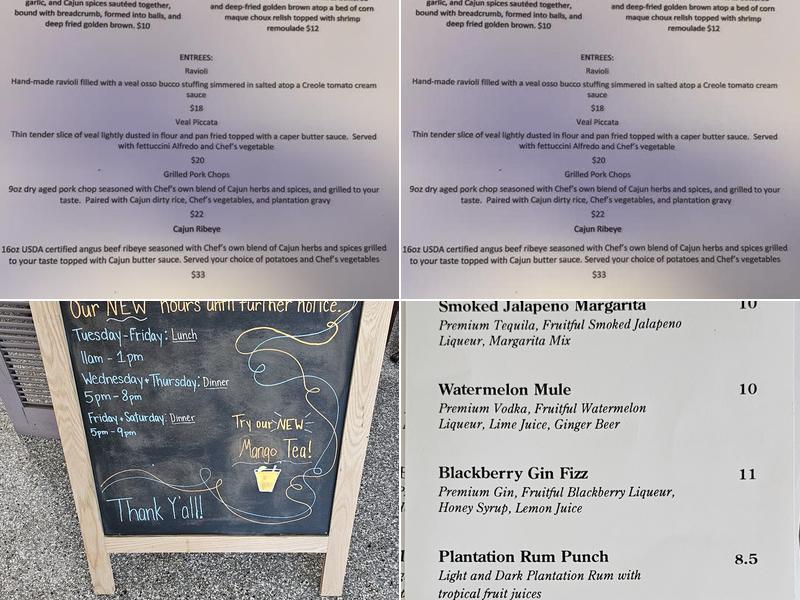 garlic, and Cajun spices sautéed together,
bound with breadcrumb, formed into balls, and
deep fried golden brown. $10
and deep-fried golden brown atop a bed of corn
maque choux relish topped with shrimp
remoulade $12
ENTREES:
Ravioli
Hand-made ravioli filled with a veal osso bucco stuffing simmered in salted atop a Creole tomato cream
sauce
$18
Veal Piccata
Thin tender slice of veal lightly dusted in flour and pan fried topped with a caper butter sauce. Served
with fettuccini Alfredo and Chef's vegetable
$20
Grilled Pork Chops
9oz dry aged pork chop seasoned with Chef's own blend of Cajun herbs and spices, and grilled to your
taste. Paired with Cajun dirty rice, Chef's vegetables, and plantation gravy
$22
Cajun Ribeye
16oz USDA certified angus beef ribeye seasoned with Chef's own blend of Cajun herbs and spices grilled
to your taste topped with Cajun butter sauce. Served your choice of potatoes and Chef's vegetables
$33
garlic, and Cajun spices sautéed together,
bound with breadcrumb, formed into balls, and
deep fried golden brown. $10
and deep-fried golden brown atop a bed of corn
maque choux relish topped with shrimp
remoulade $12
ENTREES:
Ravioli
Hand-made ravioli filled with a veal osso bucco stuffing simmered in salted atop a Creole tomato cream
sauce
$18
Veal Piccata
Thin tender slice of veal lightly dusted in flour and pan fried topped with a caper butter sauce. Served
with fettuccini Alfredo and Chef's vegetable
$20
Grilled Pork Chops
9oz dry aged pork chop seasoned with Chef's own blend of Cajun herbs and spices, and grilled to your
taste. Paired with Cajun dirty rice, Chef's vegetables, and plantation gravy
$22
Cajun Ribeye
16oz USDA certified angus beef ribeye seasoned with Chef's own blend of Cajun herbs and spices grilled
to your taste topped with Cajun butter sauce. Served your choice of potatoes and Chef's vegetables
$33
Our NEW hours until further notice.
Tuesday-Friday: Lunch
11am - 1pm
Wednesday + Thursday: Dinner
5pm - 8pm
Friday + Saturday: Dinner
5pm - 9pm
Try our NEW
Mango Tea!
Thank Y'all!
Smoked Jalapeno Margarita 10
Premium Tequila, Fruitful Smoked Jalapeno
Liqueur, Margarita Mix
Watermelon Mule 10
Premium Vodka, Fruitful Watermelon
Liqueur, Lime Juice, Ginger Beer
Blackberry Gin Fizz 11
Premium Gin, Fruitful Blackberry Liqueur,
Honey Syrup, Lemon Juice
Plantation Rum Punch 8.5
Light and Dark Plantation Rum with
tropical fruit juices